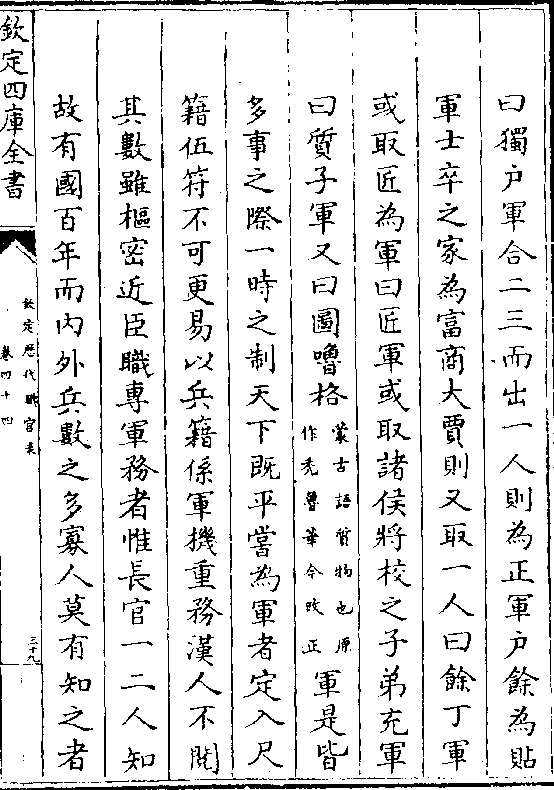 曰獨户軍合二三而出一人則為正軍户餘為貼
軍士卒之家為富商大賈則又取一人曰餘丁軍
或取匠為軍曰匠軍或取諸侯將校之子弟充軍
曰質子軍又曰圖嚕格
蒙古語質物也原
作禿魯華今改正
軍是皆
多事之際一時之制天下既平嘗為軍者定入尺
籍伍符不可更易以兵籍係軍機重務漢人不閱
其數雖樞密近臣職專軍務者惟長官一二人知
故有國百年而内外兵數之多寡人莫有知之者
欽定四庫全書
欽定歷代職官表
卷四十四
三十九